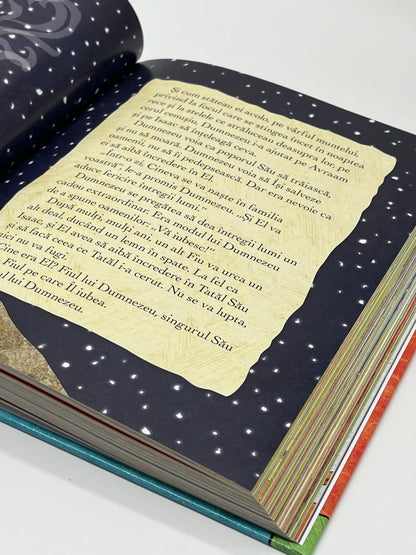 Și cum stăteau ei acolo, pe vârful muntelui,
privind la focul care se stingea încet în noaptea
rece și la stelele ce străluceau deasupra lor, pe
cerul cenușiu, Dumnezeu i-a ajutat pe Avraam
și pe Isaac să înțeleagă ceva.
Dumnezeu voia ca poporul Său să trăiască
și nu să moară. Dumnezeu voia să își salveze
oamenii, nu să îi pedepsească. Dar era nevoie ca
ei să aibă încredere în El.
într-o zi, Cineva se va naște în familia
voastră“, le-a promis Dumnezeu. „Și El va
aduce fericire întregii lumi.“
Dumnezeu se pregătea să dea întregii lumi un
cadou extraordinar. Era modul lui Dumnezeu
de a spune oamenilor: „Vă iubesc!“
După mulți, mulți ani, un alt Fiu va urca un
alt deal, ducând un lemn în spate. La fel ca
Isaac, și El avea să aibă încredere în Tatăl Său
și să facă ceea ce Tatăl i-a cerut. Nu se va lupta,
și nu va fugi.
Cine era El? Fiul lui Dumnezeu, singurul Său
Fiu, Fiul pe care Îl iubea.
lui Dumnezeu.